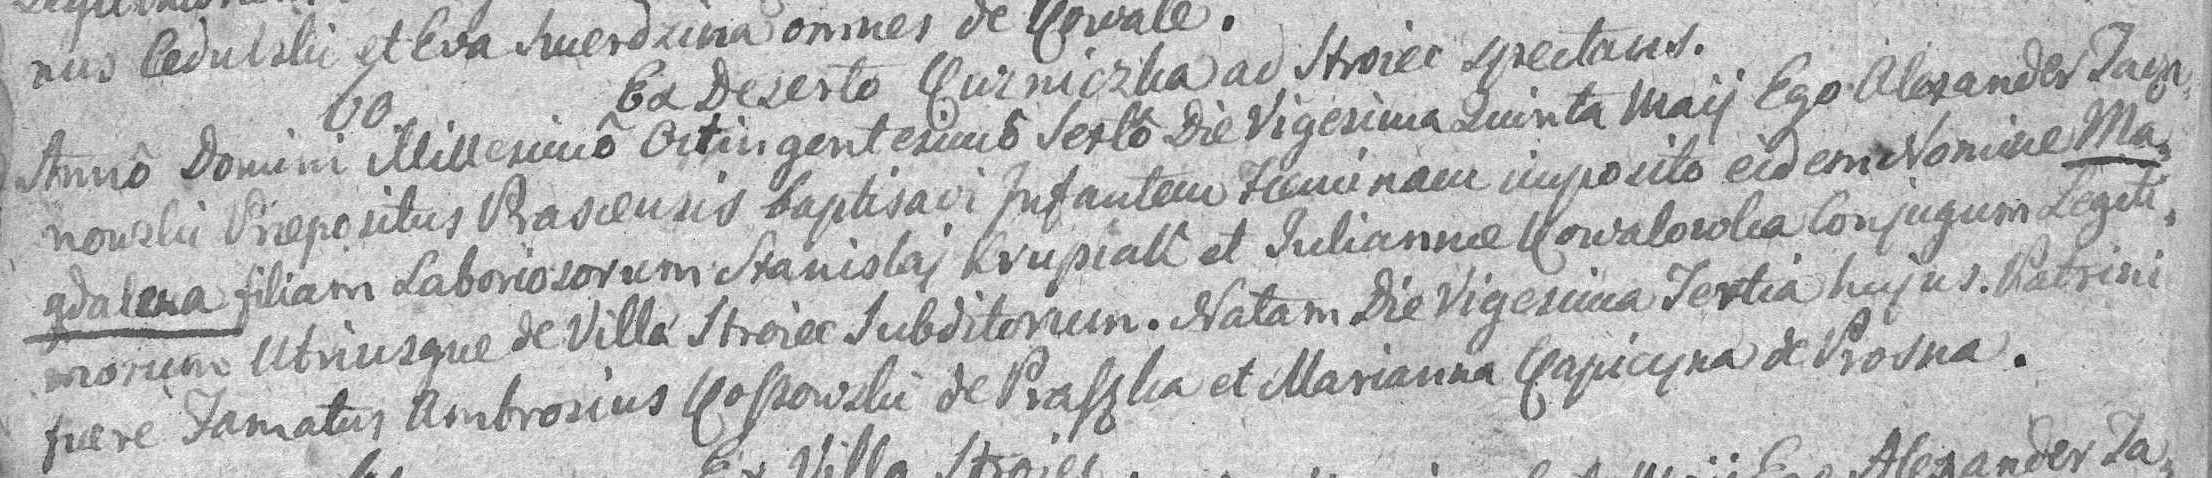 nus Cedulski et Eva Swerdzina omnes de Kowale.
60 Ex Deserto Kuzniczka ad Stroiec spectans.
Annô Domini Millesimô Octingentesimô Sextô Die Vigesima Quinta Maij Ego Alexander Tay,
nowski Præpositus Prascensis baptisavi Infantem Fæminam imposito eidem Nomine Ma,
gdalena filiam Laboriosorum Stanislaj Krupiak et Juliannæ Kowalowska Conjugum Legiti,
morum Utriusque de Villa Stroiec Subditorum. Natam Die Vigesima Tertia hujus. Patrini
fuere Famatus Ambrosius Kossowski de Praszka et Marianna Kapicyna de Prosna.
Ex Villa Stroiec
Ego Alexander Ta,